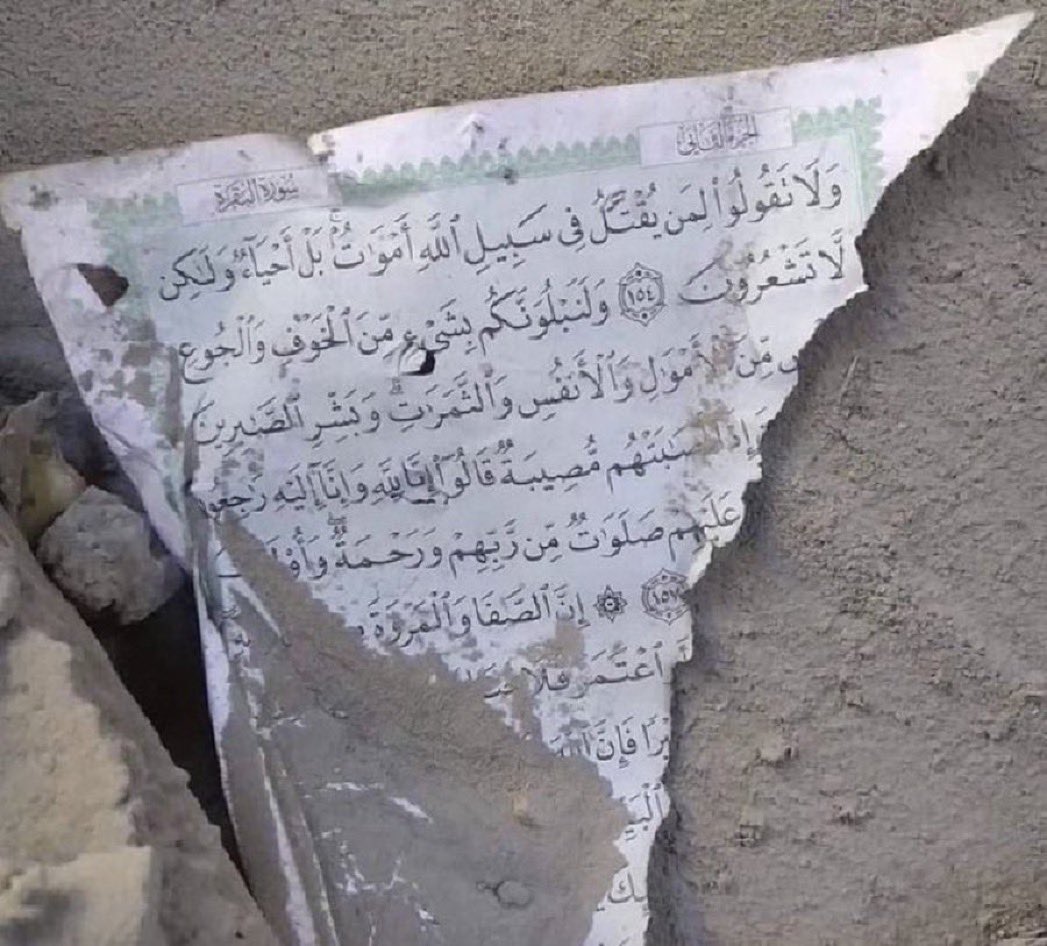 الجزء الثاني
سورة البقرة
وَلَا تَقُولُوا۟ لِمَن يُقْتَلُ فِى سَبِيلِ ٱللَّهِ أَمْوَٰتٌۢ ۚ بَلْ أَحْيَآءٌ وَلَٰكِن
لَّا تَشْعُرُونَ ١٥٤ وَلَنَبْلُوَنَّكُم بِشَىْءٍ مِّنَ ٱلْخَوْفِ وَٱلْجُوعِ
مِّنَ ٱلْأَمْوَٰلِ وَٱلْأَنفُسِ وَٱلثَّمَرَٰتِ ۗ وَبَشِّرِ ٱلصَّٰبِرِينَ
مُّصِيبَةٌ قَالُوٓا۟ إِنَّا لِلَّهِ وَإِنَّآ إِلَيْهِ
عَلَيْهِمْ صَلَوَٰتٌ مِّن رَّبِّهِمْ وَرَحْمَةٌ ۖ
١٥٧ ۞ إِنَّ ٱلصَّفَا وَٱلْمَرْوَةَ
ٱعْتَمَرَ فَلَا
فَإِنَّ ٱللَّهَ